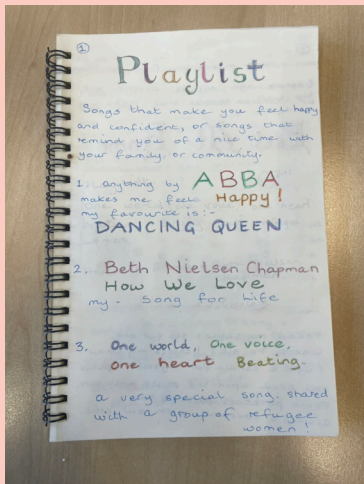 1
Playlist
Songs that make you feel happy
and confident, or songs that
remind you of a nice time with
your family or community.
1. anything by ABBA
makes me feel Happy!
my favourite is:-
DANCING QUEEN
2. Beth Nielsen Chapman
How We Love
my - Song for Life
3. One world, One voice,
One heart Beating.
a very special song. shared
with a group of refugee
women!